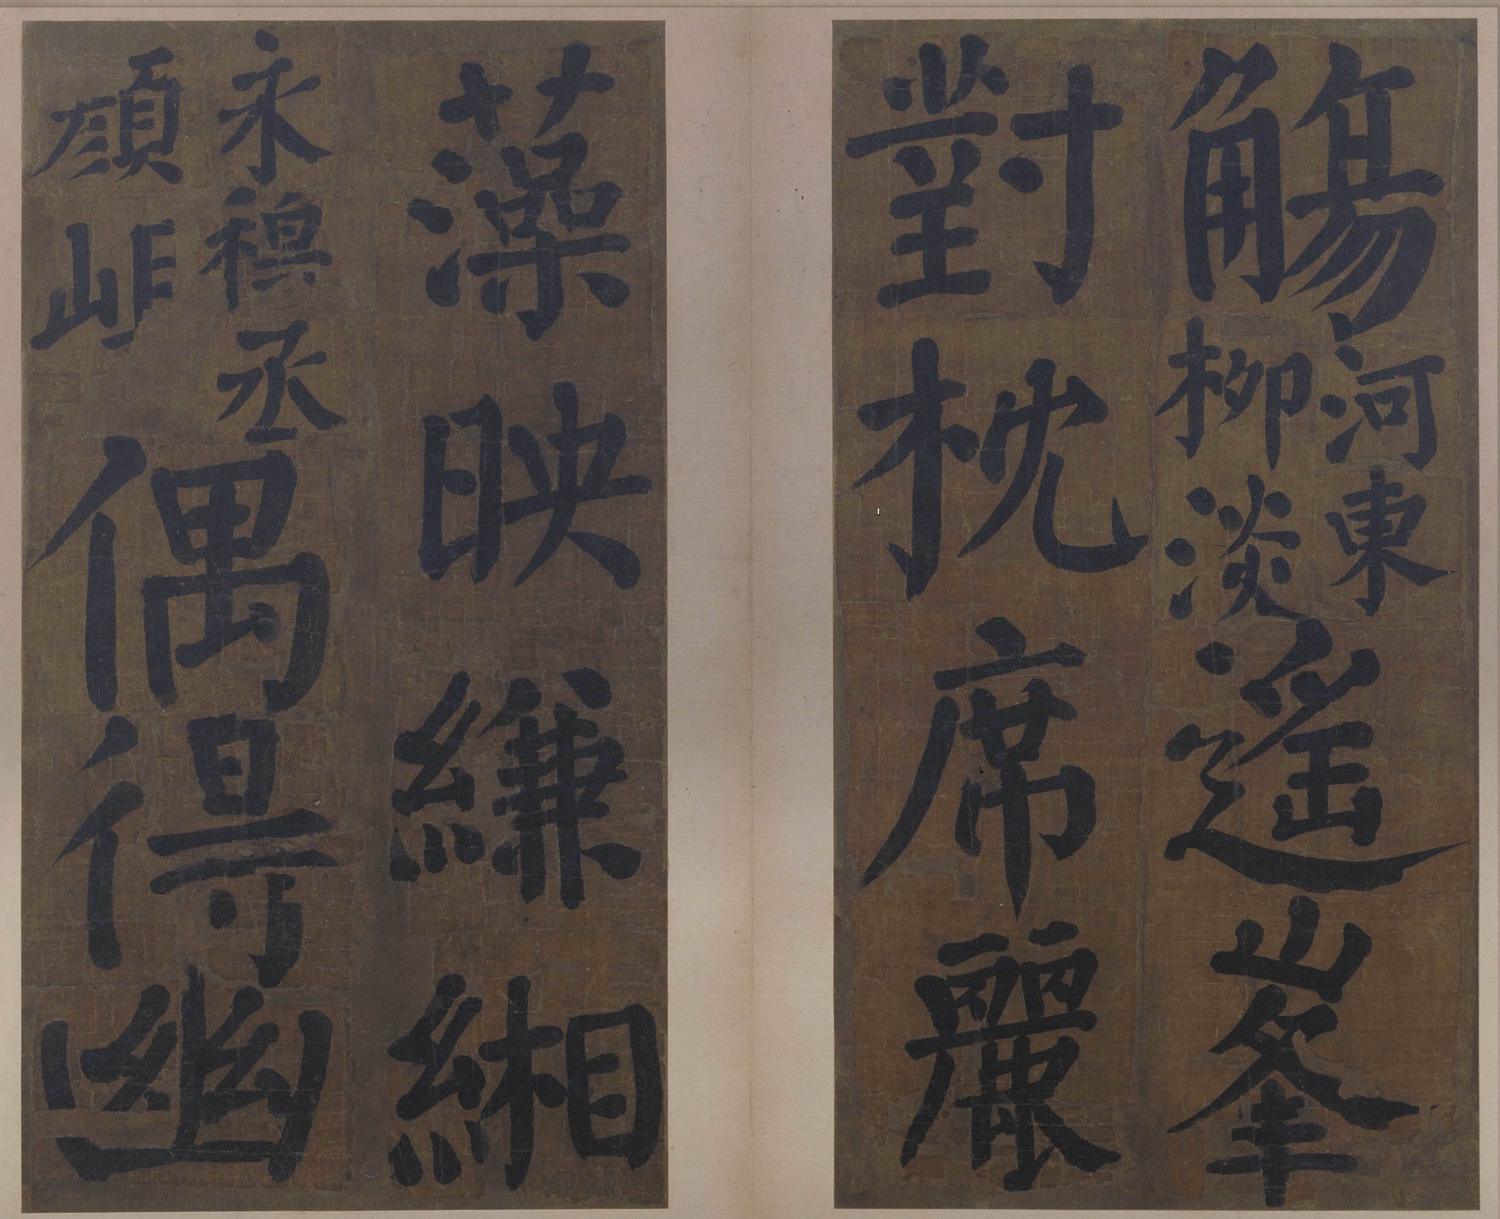 觴
河東
柳淡
遙峯
對枕席麗
藻映縑緗
永穆丞
顔
偶得幽